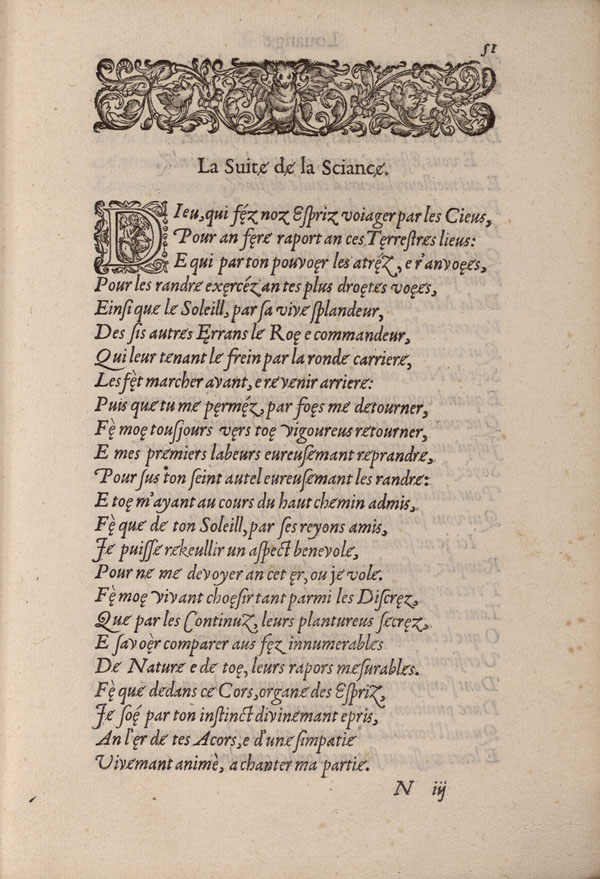 51
La Suite̜ de̜ la Sciance̜.
Dieu, qui fę́z noz Espriz voiager par les Cieus,
Pour an fęre̜ raport an ces Tęrrestre̜s lieus:
E qui par ton pouvoęr les atrę́z, e r'anvoęe̜s,
Pour les randre̜ exercéz an tes plus droęte̜s voęe̜s,
Einsi que le Soleill, par sa vive splandeur,
Des sis autres Ęrrans le Roę e commandeur,
Qui leur tenant le frein par la ronde carriere,
Les fę̀t marcher avant, e revenir arriere:
Puis que tu me pęrmę́z, par foęs me detourner,
Fę̀ moę tousjours vęrs toę vigoureus retourner,
E mes premiers labeurs eureusemant reprandre,
Pour sus ton seint autel eureusemant les randre:
E toę m'ayant au cours du haut chemin admis,
Fę̀ que de ton Soleill, par ses reyons amis,
Je puisse rekeullir un aspect benevole,
Pour ne me devoyer an cet ęr, ou je vole.
Fę̀ moę vivant choęsir tant parmi les Discręz,
Que par les Continuz, leurs plantureus secręz,
E savoę̀r comparer aus fęz innumerables
De Nature e de toę, leurs rapors mesurables.
Fę̀ que dedans ce Cors, organe des Espriz,
Je soę́ par ton instinct divinemant epris,
An l'ęr de tes Acors, e d'une simpatie
Vivemant animè, a chanter ma partie.
N iij